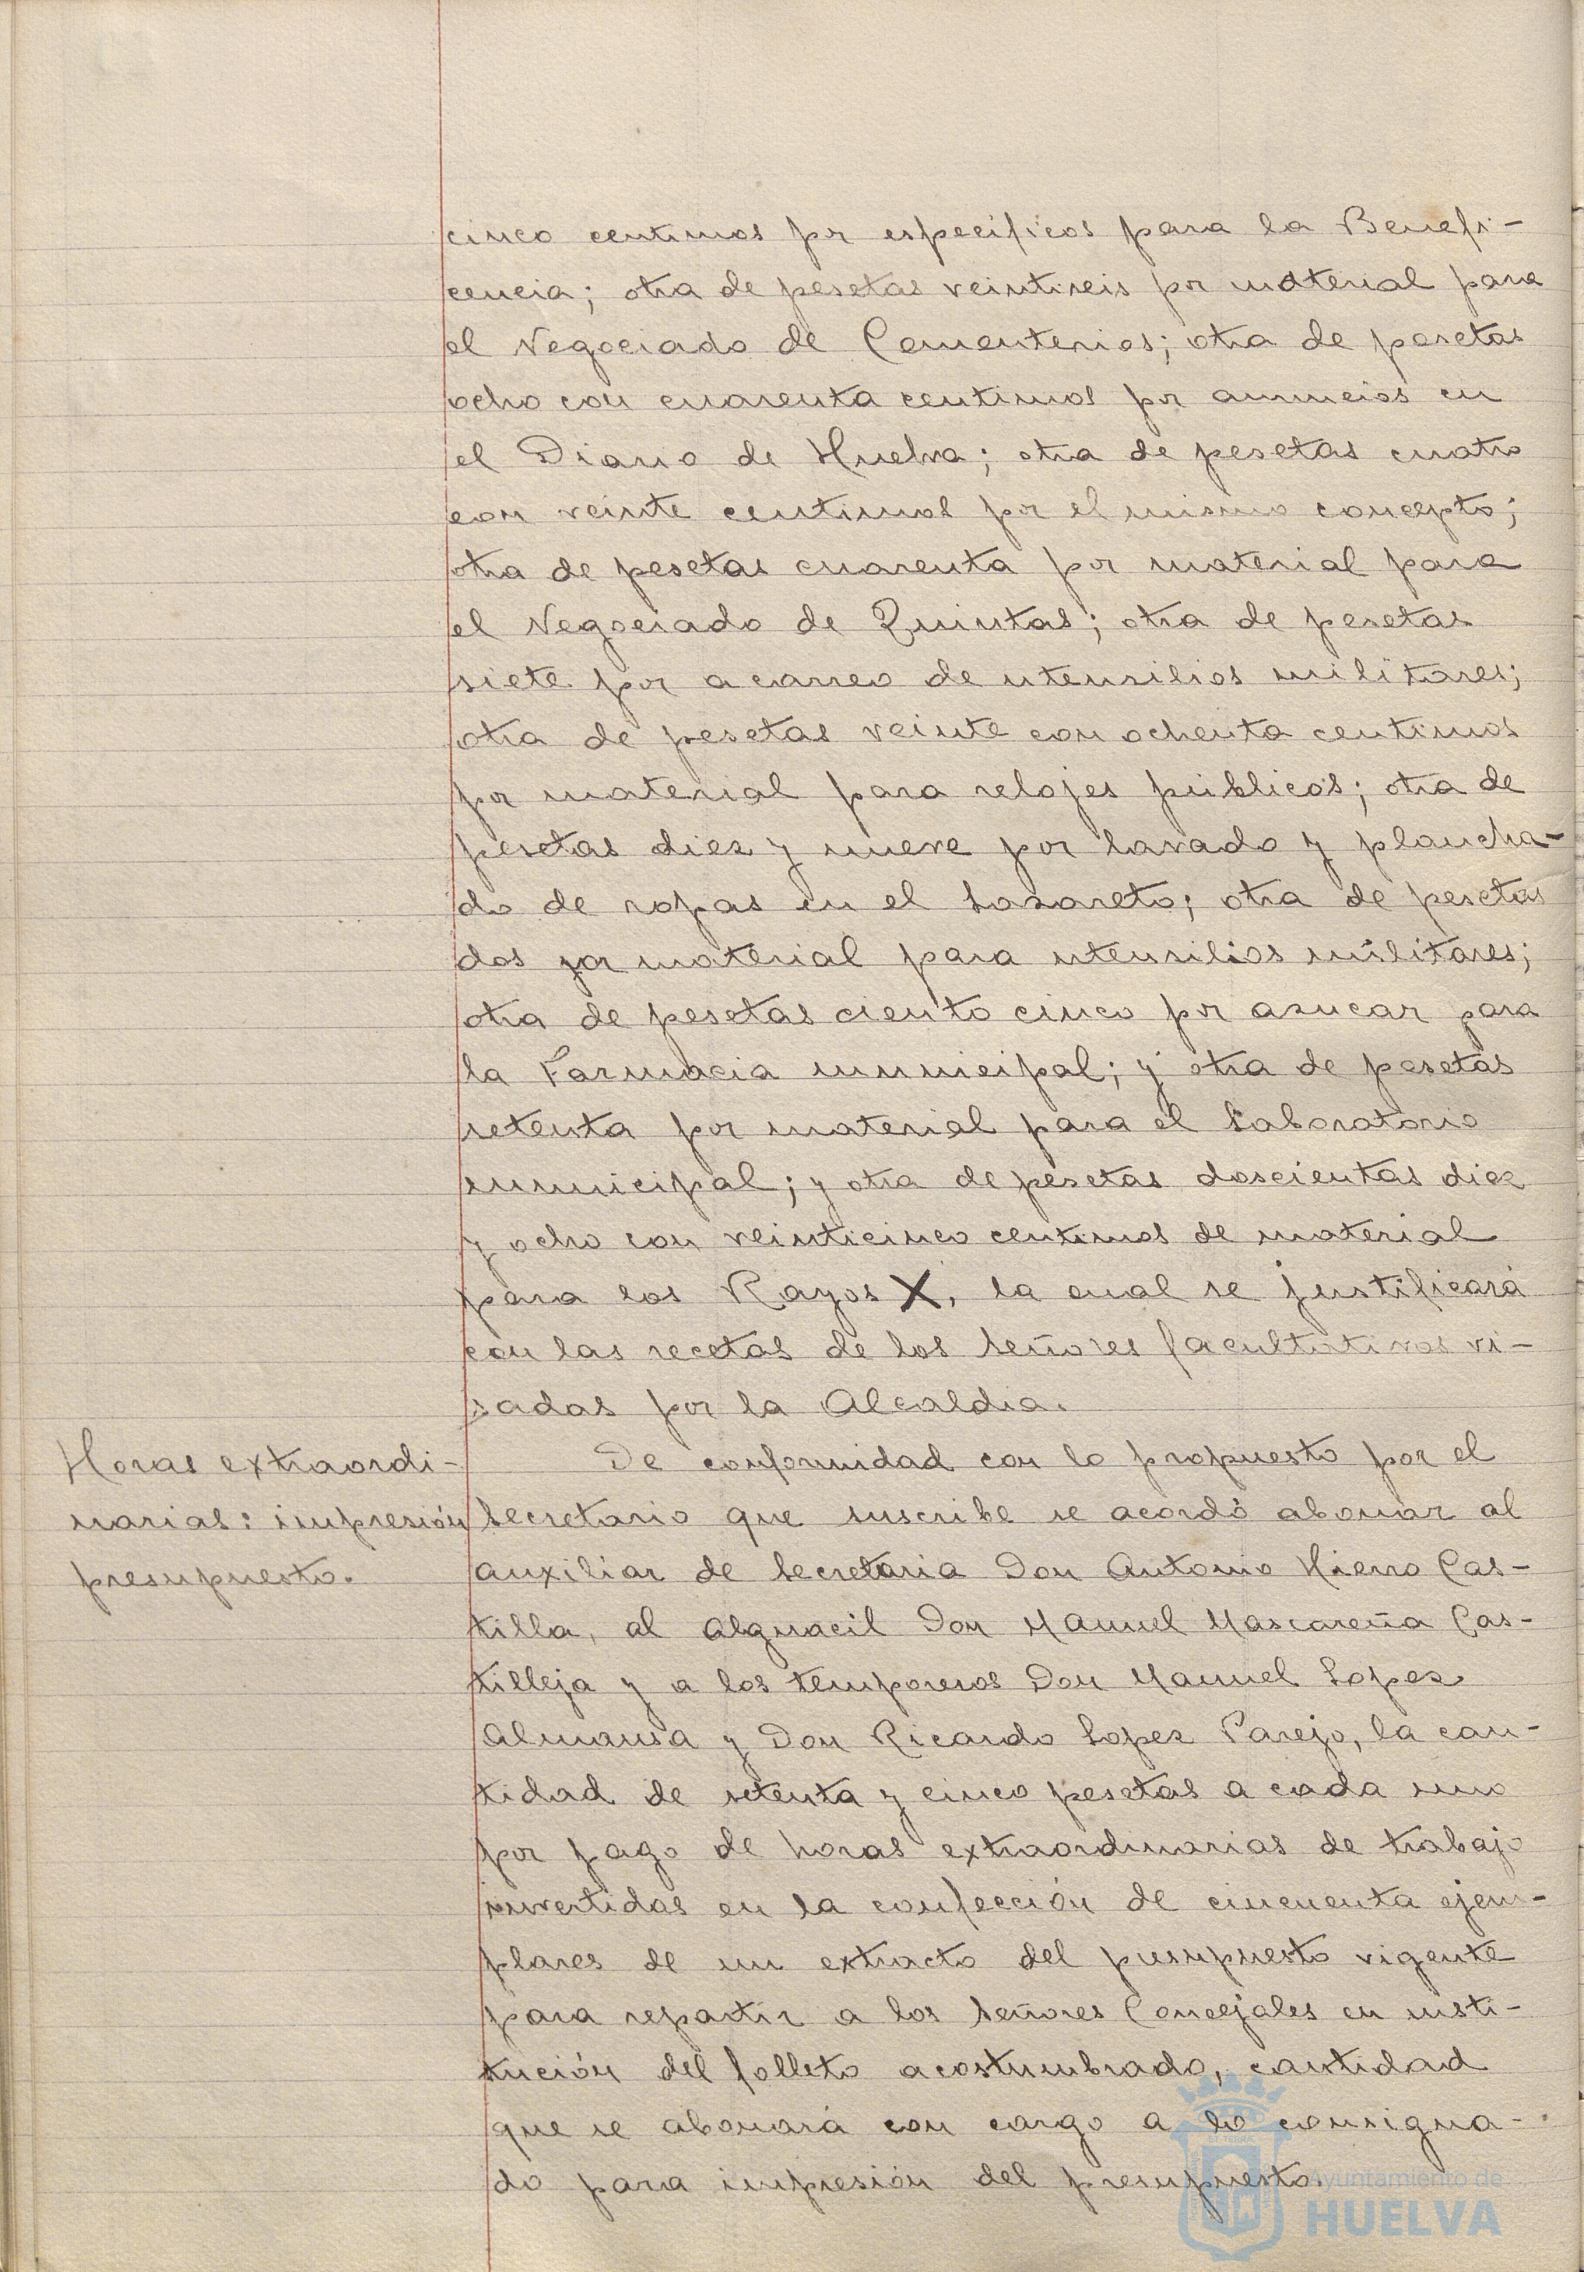 cinco centimos por especificos para la Benefi-
cencia; otra de pesetas veintiseis por material para
el Negociado de Cementerios; otra de pesetas
ocho con cuarenta centimos por anuncios en
el Diario de Huelva; otra de pesetas cuatro
con veinte centimos por el mismo concepto;
otra de pesetas cuarenta por material para
el Negociado de Quintas; otra de pesetas
siete por acarreo de utensilios militares;
otra de pesetas veinte con ochenta centimos
por material para relojes públicos; otra de
pesetas diez y nueve por lavado y plancha-
do de ropas en el Lazareto; otra de pesetas
dos por material para utensilios militares;
otra de pesetas ciento cinco por azucar para
la Farmacia municipal; y otra de pesetas
setenta por material para el Laboratorio
municipal; y otra de pesetas doscientas diez
y ocho con veinticinco centimos de material
para los Rayos X, la cual se justificará
con las recetas de los Señores facultativos vi-
sadas por la Alcaldia.
Horas extraordi-
narias: impresión
presupuesto.
De conformidad con lo propuesto por el
Secretario que suscribe se acordó abonar al
auxiliar de Secretaria Don Antonio Hierro Cas-
tilla, al Alguacil Don Manuel Mascareña Cas-
tilleja y a los temporeros Don Manuel Lopez
Almansa y Don Ricardo Lopez Parejo, la can-
tidad de setenta y cinco pesetas a cada uno
por pago de horas extraordinarias de trabajo
invertidas en la confección de cincuenta ejem-
plares de un extracto del presupuesto vigente
para repartir a los Señores Concejales en usti-
tución del folleto acostumbrado, cantidad
que se abonará con cargo a lo consigna-
do para impresión del presupuesto.
Ayuntamiento de
HUELVA